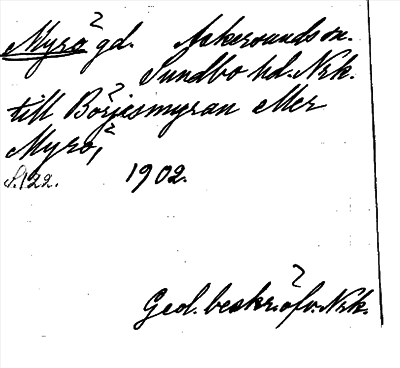 Myrö gd. Askersunds sn.
Sundbo hd. Nrk.
till Börjesmyran eller
Myrö,
S. 122. 1902.
Geol. beskr. öfv. Nrk.